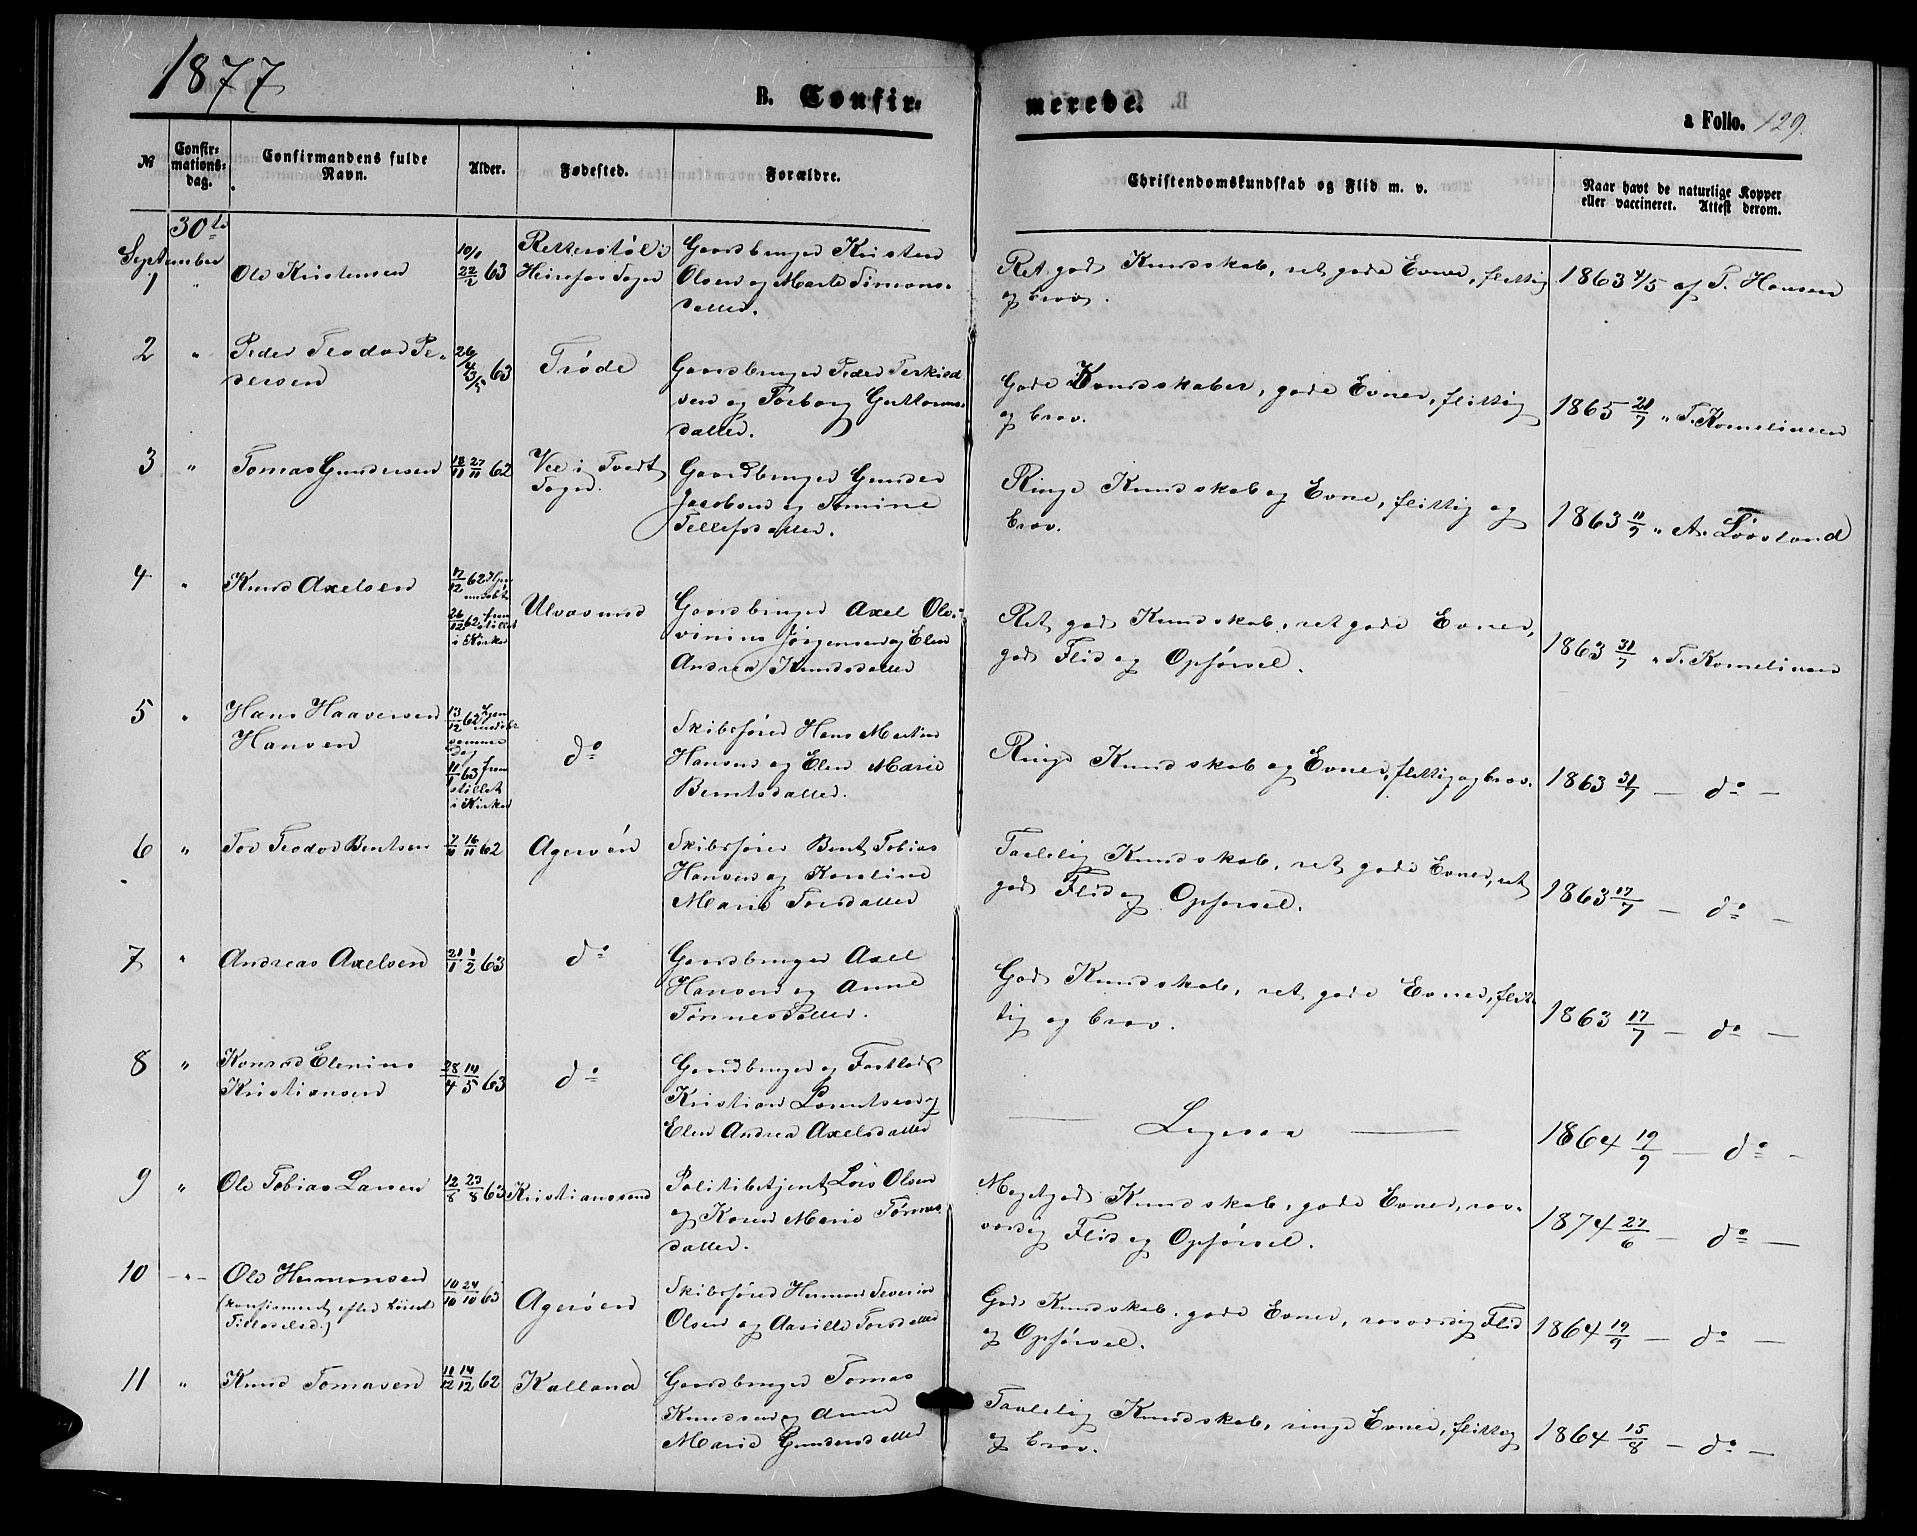 1877
B. Confir- merede.
a Folio. 129.
No
Confir-
mations-
dag.
Confirmandens fulde
Navn.
Alder.
Fødested.
Forældre.
Christendomskundskab og Flid m. v.
Naar havt de naturlige Kopper
eller vaccineret. Attest derom.
September 30te
1 " Ole Kristensen
10/1
22/2 63
Retterstøl i
Heirefos Sogn
Gaardbruger Kristen
Olsen og Marte Simons-
datter.
Ret god Kundskab, ret gode Evner, flittig
og brav.
1863 4/5 af T. Hansen
2 " Peder Teodor Pe-
dersen
26/4
3/5 63
Trøde
Gaardbruger Peder Terkild
sen og Torborg Guttorms-
datter.
Gode Kundskaber, gode Evner, flittig
og brav.
1865 21/7 " T. Kornelinsen
3 " Tomas Gundersen
18/11 27/11 62
Vee i Tvedt
Sogn.
Gaardbruger Gunder
Jacobsen og Amine
Tellefsdatter.
Ringe Kundskab og Evne, flittig og
brav.
1863 11/9 " A. Løvsland
4 " Knud Axelsen
12/12 62 hjem
medøbt
26/12 62 frem
stillet
i Kirken
Ulvøsund
Gaardbruger Axel Olv-
vinius Jørgensen og Elen
Andrea Knudsdatter
Ret god Kundskab, ret gode Evner,
god Flid og Opførsel.
1863 31/7 " T. Kornelinsen
5 " Hans Haaversen
Hansen
13/12 62 hjem
medøbt
samme
Dag
11/1 63 frem
stillet
i Kirken
do
Skibsfører Hans Martin
Hansen og Elen Marie
Berntsdatter.
Ringe Kundskab og Evner, flittig og brav.
1863 31/7 — do —
6 " Tor Teodor Bentsen
16/11 62
Agerøen
Skibsfører Bent Tobias
Hansen og Karoline
Marie Torsdatter
Taalelig Kundskab, ret gode Evner, ret
god Flid og Opførsel.
1863 17/7 — do —
7 " Andreas Axelsen
21/1 1/2 63
do
Gaardbruger Axel
Hansen og Anne
Tønnesdatter.
God Kundskab, ret gode Evner, flit-
tig og brav.
1863 17/7 — do —
8 " Konrad Elenius
Kristiansen
28/4 14/5 63
do
Gaardbruger og Fastlods
Kristian Lorentsen og
Elen Andrea Axelsdatter
— Ligesaa —
1864 19/9 — do -
9 " Ole Tobias Larsen
12/8 23/8 63
Kristianssand
Politibetjent Lars Olsen
og Karen Marie Tønnes-
datter.
Meget god Kundskab, gode Evner, ros-
værdig Flid og Opførsel.
1874 27/6 — do —
10 -"- Ole Hermansen
(konfirmeret efter høiere
Tilladelse)
10/10 24/10 63
Agerøen
Skibsfører Herman Severin
Olsen og Aasille Torsdatter
God Kundskab, gode Evner, rosværdig Flid
og Opførsel.
1864 19/9 — do —
11 " Knud Tomasen
11/12 14/12 62
Kalland
Gaardbruger Tomas
Knudsen og Anne
Marie Gundersdatter
Taalelig Kundskab, ringe Evner, flittig
og brav.
1864 15/8 — do —